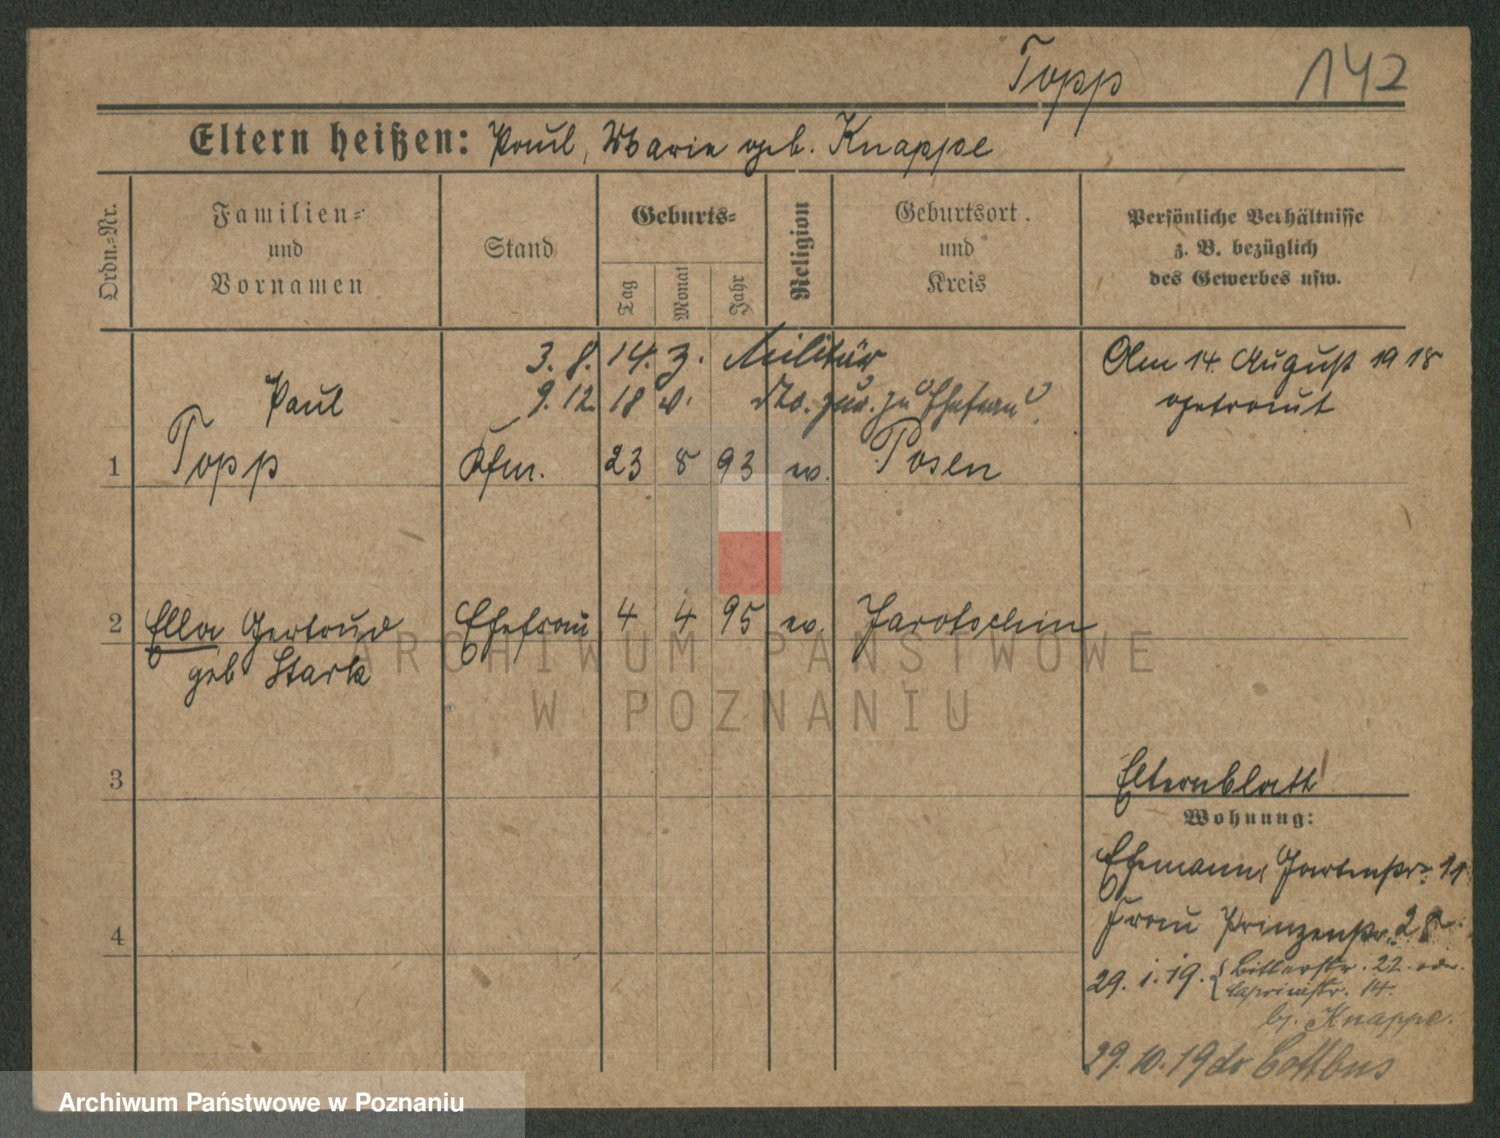 Topp 142
Eltern heißen: Paul, Marie geb. Knappe
Ordn.-Nr.
Familien-
und
Vornamen
Stand
Geburts-
Tag
Monat
Jahr
Religion
Geburtsort.
und
Kreis
Persönliche Verhältnisse
z. B. bezüglich
des Gewerbes usw.
3. 8. 14. z. Militär
9. 12. 18 v. zur. zu Ehefrau
Am 14. August 1918
getraut
Paul
1 Topp Kfm. 23 8 93 ev. Posen
2 Ella Gertrud Ehefrau 4 4 95 ev. Jarotschin
geb Stark
3
4
Elternblatt
Wohnung:
Ehemann, Gartenstr. 11
Frau Prinzenstr. 28
29. 1. 19. Bitterstr. 22 oder
Caprivistr. 14.
bj. Knappe.
29. 10. 19 Cottbus
ARCHIWUM PAŃSTWOWE
W POZNANIU
Archiwum Państwowe w Poznaniu